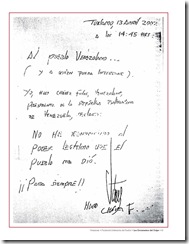 Turiamo, 13 Abril 2002
a las 14:45 hrs.
Al pueblo Venezolano...
( y a quien pueda interesar ).
Yo, Hugo Chávez Frías, venezolano,
Presidente de la República Bolivariana
de Venezuela, declaro:
No he renunciado al
poder legítimo que el
pueblo me dió.
¡¡ Para siempre !!
Hugo
Chávez F.